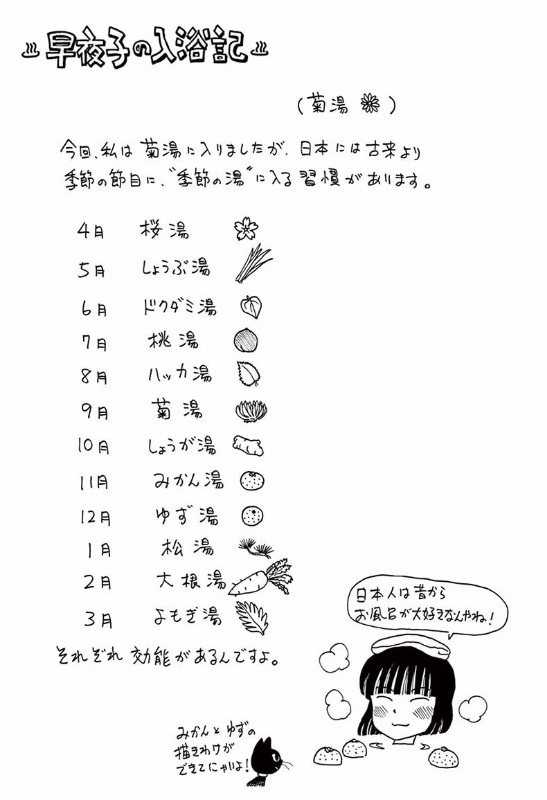 早夜子の入浴記
(菊湯)
今回、私は菊湯に入りましたが、日本には古来より
季節の節目に、"季節の湯"に入る習慣があります。
4月 桜湯
5月 しょうぶ湯
6月 ドクダミ湯
7月 桃湯
8月 ハッカ湯
9月 菊湯
10月 しょうが湯
11月 みかん湯
12月 ゆず湯
1月 松湯
2月 大根湯
3月 よもぎ湯
それぞれ効能があるんですよ。
日本人は昔から
お風呂が大好きなんやね!
みかんとゆずの
描きわけが
できてにゃいよ!